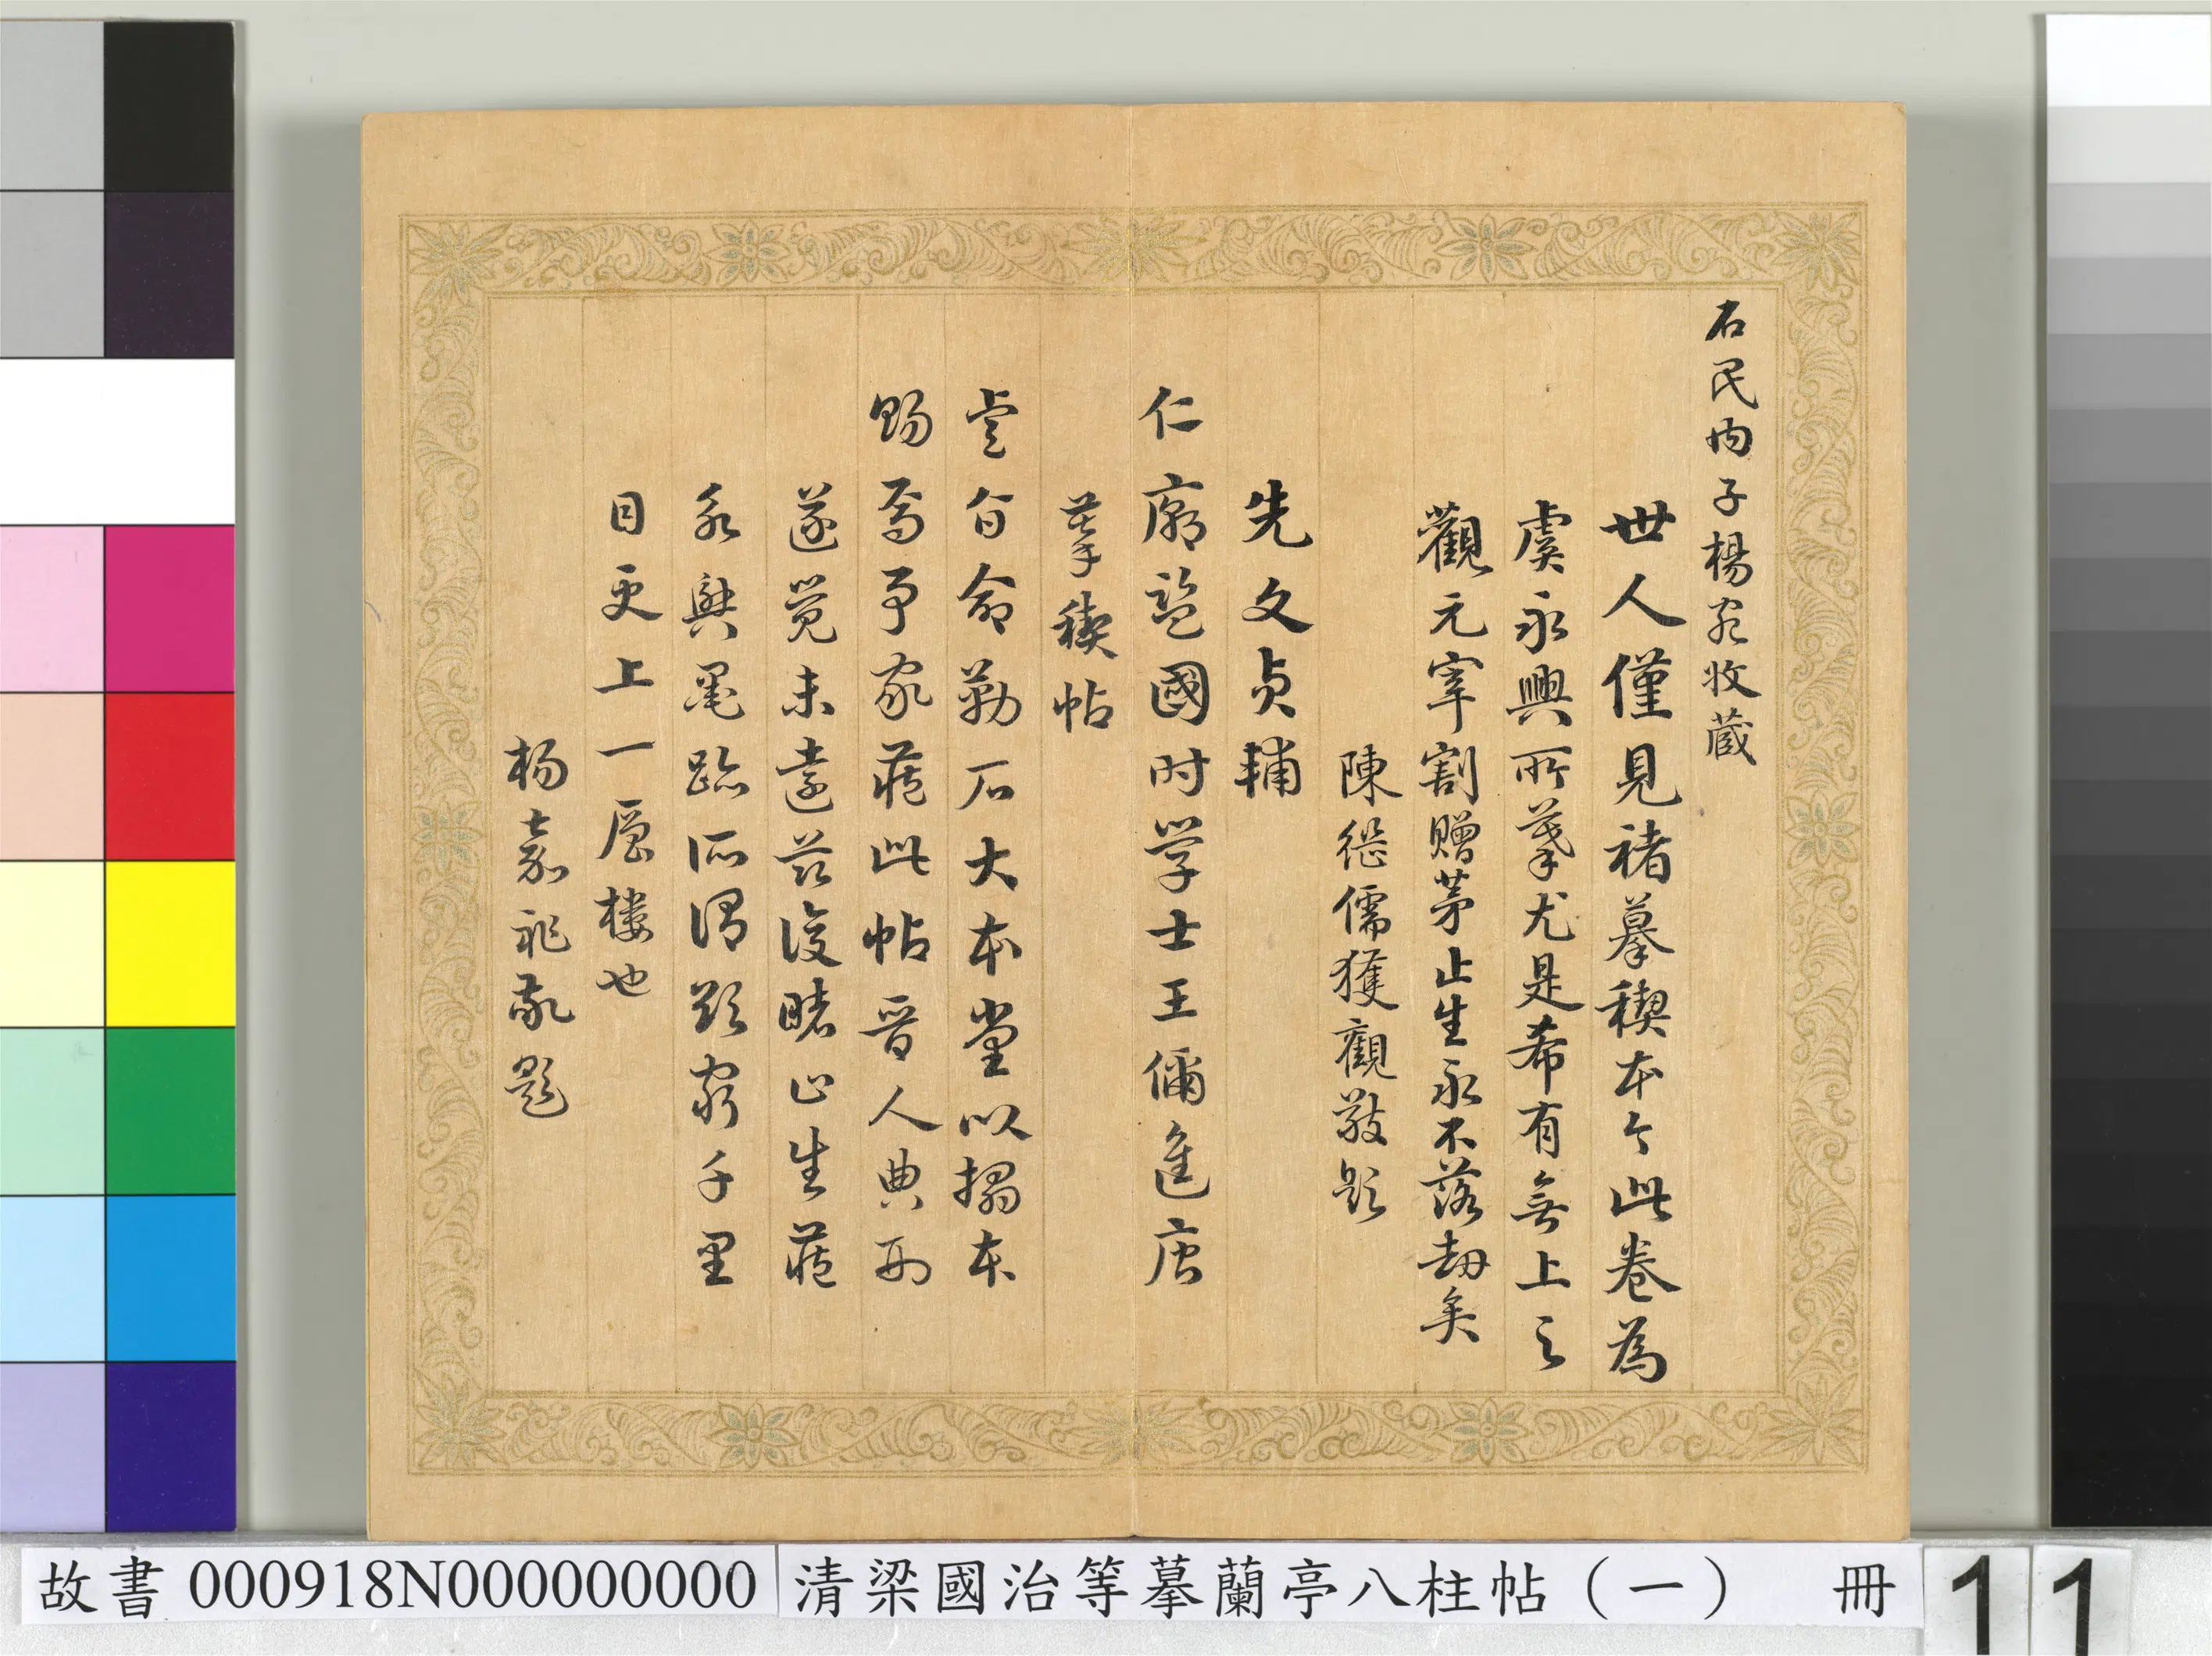 石民內子楊宛收藏
世人僅見褚摹稧本今此卷為
虞永興所摹尤是希有無上之
觀元宰割贈茅止生永不落劫矣
陳継儒獲觀敬題
先文貞輔
仁廟監國时学士王偁進唐
摹稧帖
睿旨命勒石大本堂以搨本
賜焉予家蔵此帖晋人典刑
遂覺未遠茲復睹止生蔵
永興墨跡所謂欲窮千里
目更上一層樓也
楊嘉祚敬題
故書000918N000000000 清梁國治等摹蘭亭八柱帖（一） 冊 11